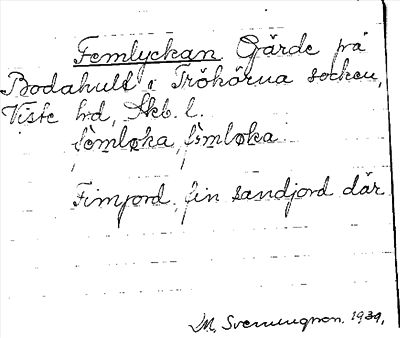 Femlyckan Gärde på
Bodahult i Trökörna socken,
Viste hd, Skb. l.
femløka, fimløka
Finnjord, fin sandjord där
M. Svenningson. 1939,